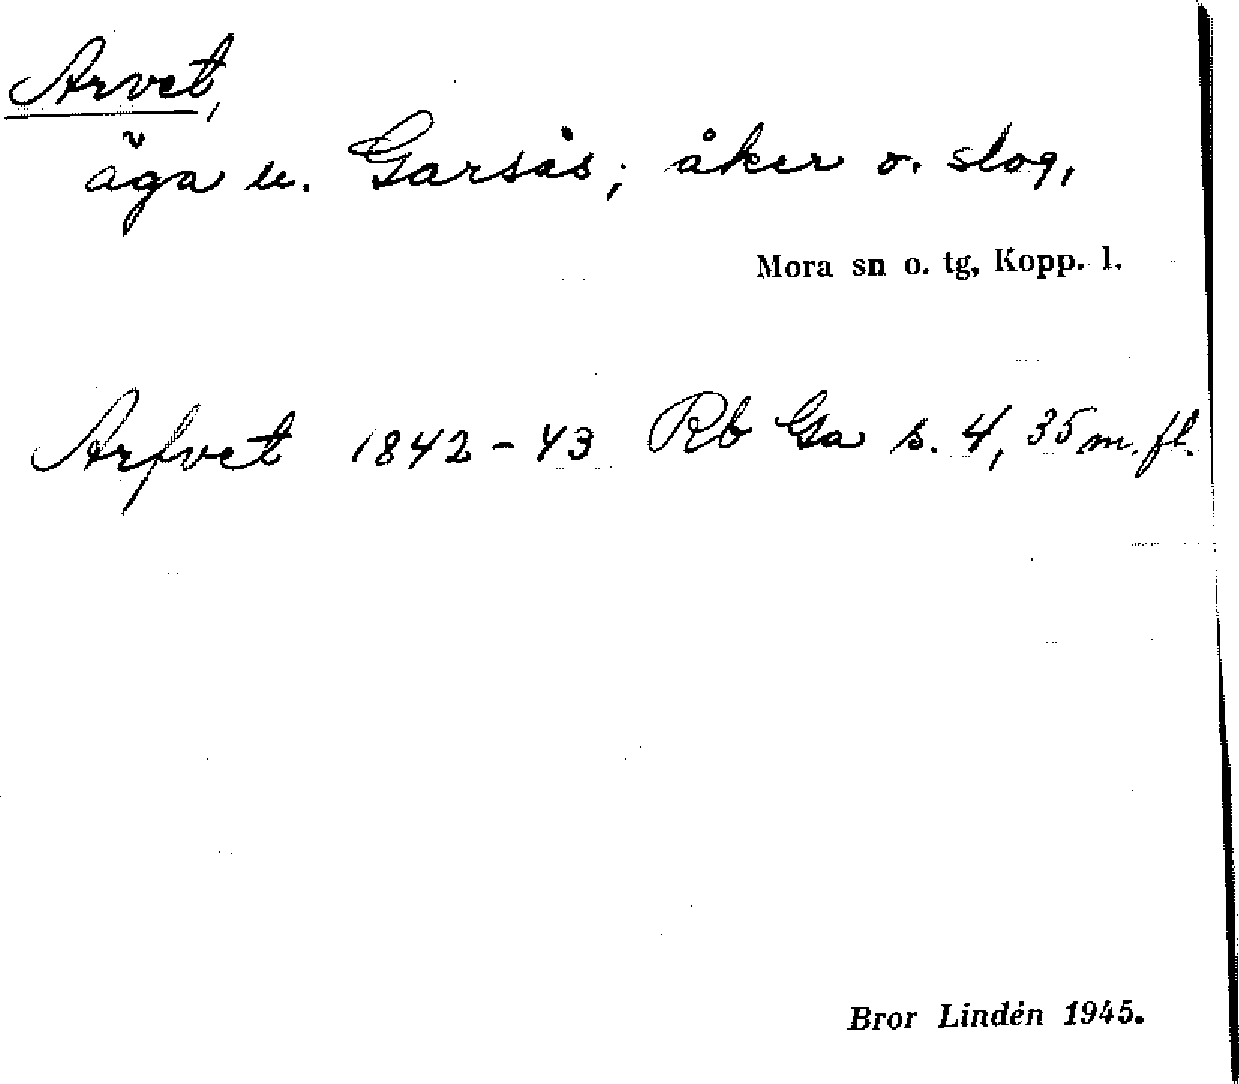 Arvet,
äga u. Garsås; åker o. slog,
Mora sn o. tg, Kopp. l.
Arfvet 1842-43 Rb Ga s. 4, 35 m. fl.
Bror Lindén 1945.